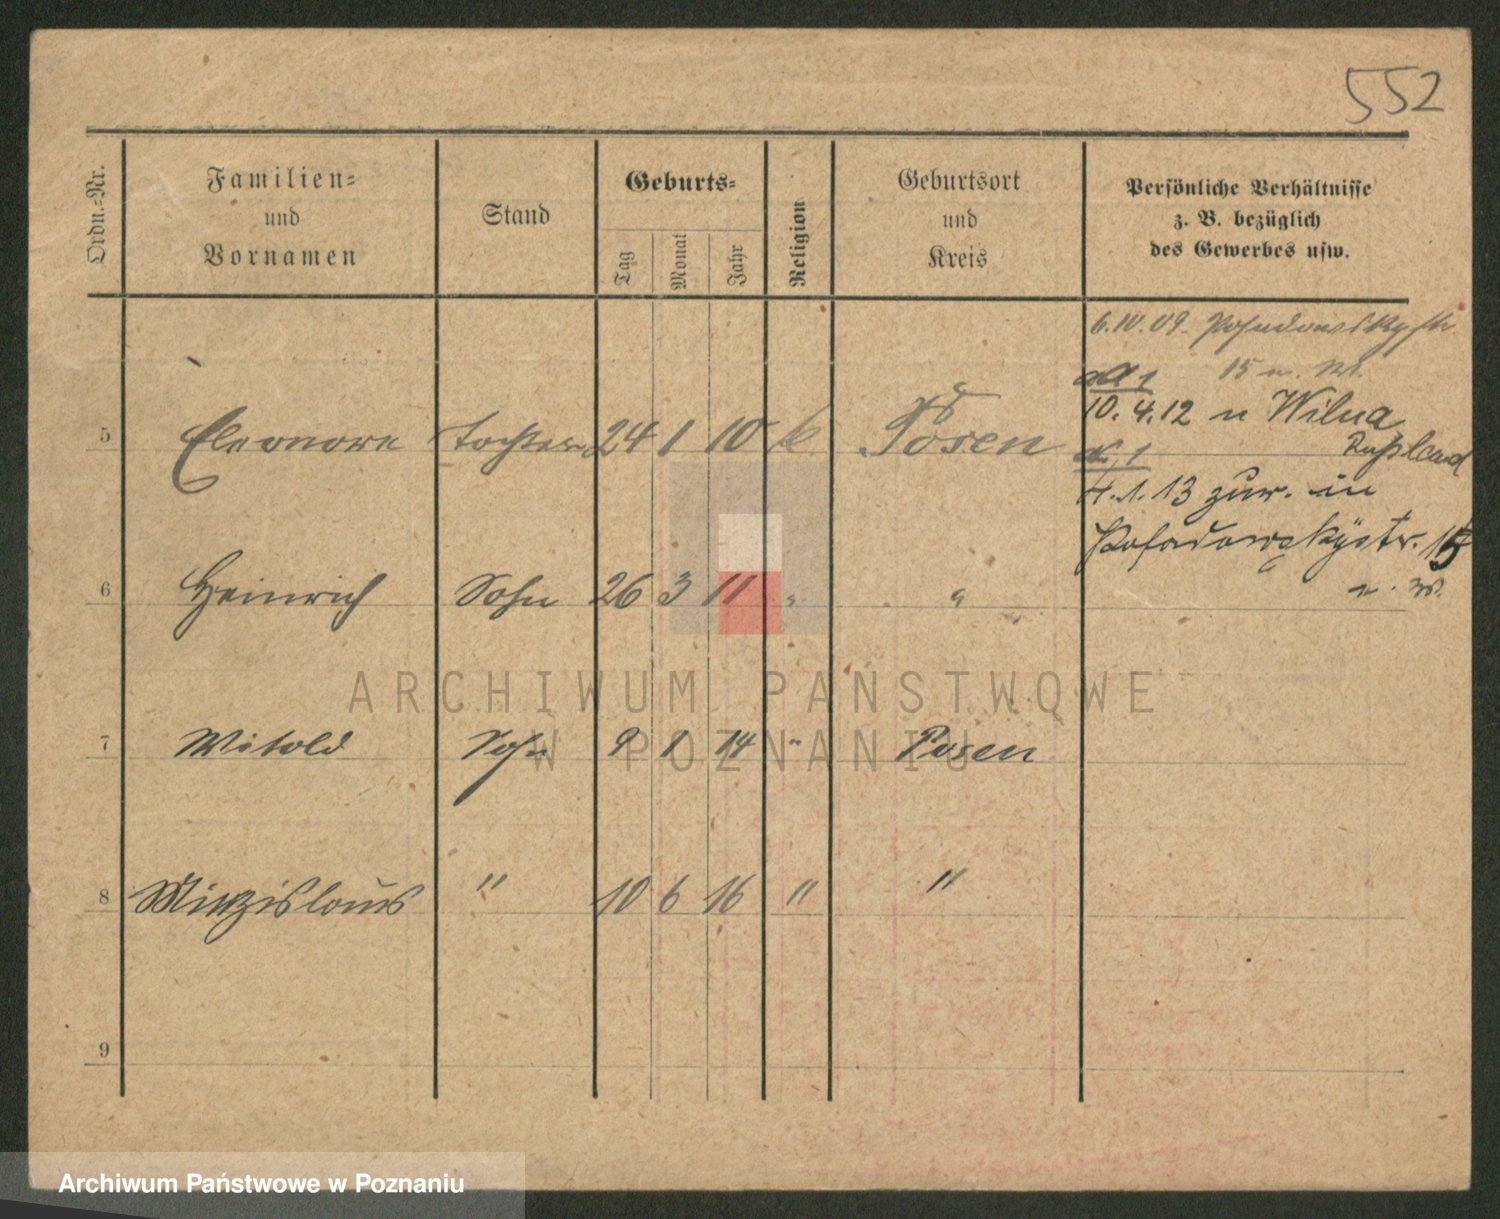 552
Ordn.=Nr.
Familien=
und
Vornamen
Stand
Geburts=
Tag
Monat
Jahr
Religion
Geburtsort
und
Kreis
Persönliche Verhältnisse
z. B. bezüglich
des Gewerbes usw.
6.10.09. Posadowskystr.
15 n. W.
5 Eleonore Tochter 24 1 10 k. Posen
10.4.12 n Wilna
Rußland
4.1.13 zur. in
Posadowskystr. 15
n. W.
6 Heinrich Sohn 26 3 11 " "
7 Witold Sohn 9 1 14 " Posen
8 Miezislaus " 10 6 16 " "
9
ARCHIWUM PAŃSTWOWE
W POZNANIU
Archiwum Państwowe w Poznaniu